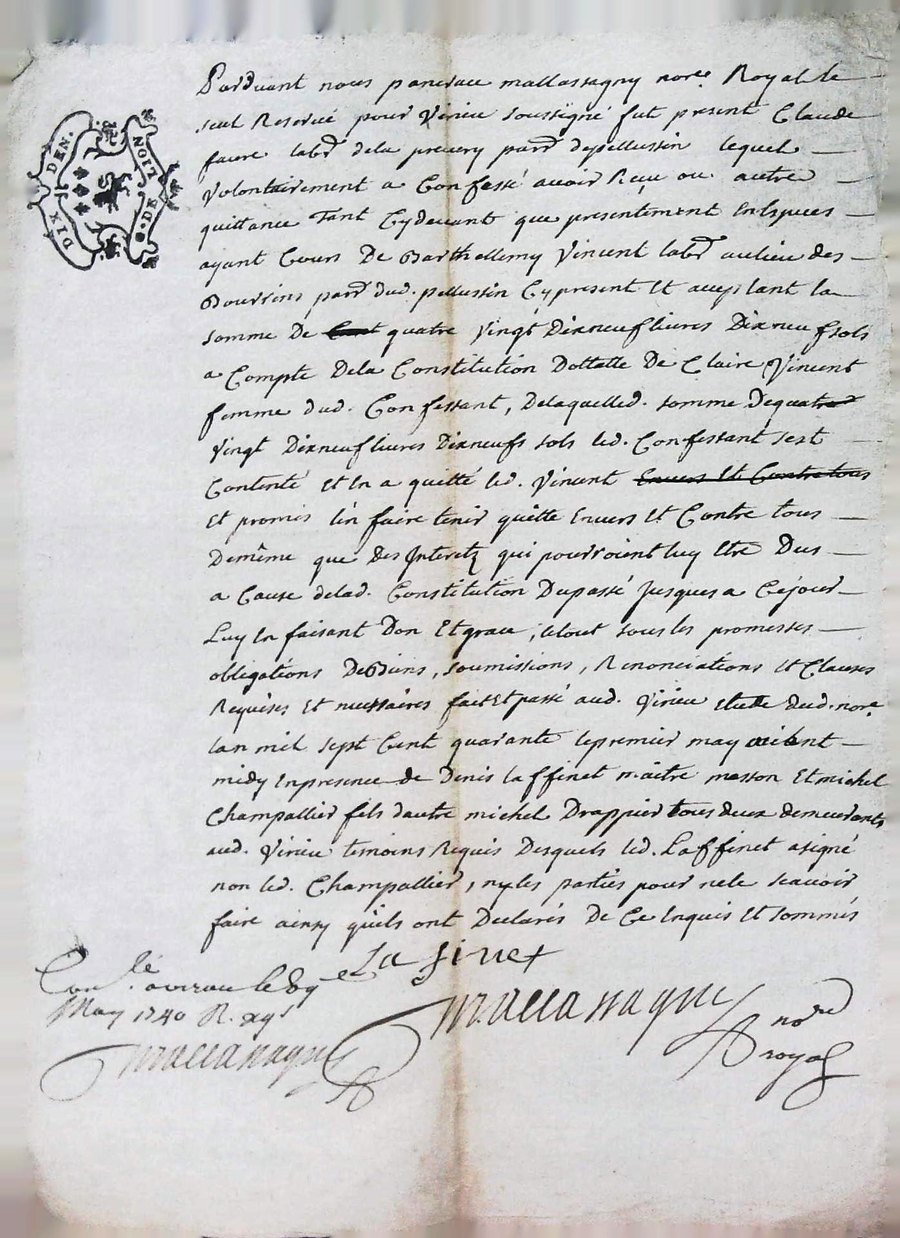 DIX DEN.
G. DE LION NOIT
Pardevant nous pancrace mallassagny nore. Royal le
seul Reservé pour Virieu soussigné fut present Claude
faure labr. dela previery parr. depellussin lequel
Volontairement a Confessé avoir Reçu ou autre
quittance Tant Cydevant que presentement En Espèces
ayant Cours De Barthellemy Vincent labr. aulieu des
Bourrins parr. dud. pellussin Cy present Et acceptant la
somme De Cent quatre Vingt Dixneuf livres Dixneuf sols
a Compte Dela Constitution Dottalle De Claire Vincent
femme dud. Confessant, Delaquelled. somme Dequatre
Vingt Dixneuf livres Dixneufs sols led. Confessant sest
Contenté Et En a quitté led. Vincent Envers Et Contre tous
Et promis l'en faire tenir quitte Envers Et Contre tous
Demême que Des Interetz qui pourroient luy Etre Dus
a Cause delad. Constitution Dupassé Jusques a Cejour
Luy En faisant Don Et grace, letout sous les promesses
obligations De Biens, soumissions, Renonciations Et Clauses
Requises Et necessaires fait Et passé aud. Virieu Etude dud. nore.
lan mil sept Cent quarante le premier may avant
midy En presence de Denis laffinet maitre masson Et michel
Champallier fils dautre michel Drappier tous deux demeurants
aud. Virieu temoins Requis Desquels led. Laffinet a signé
non led. Champallier, ny les parties pour ne le scavoir
faire ainsy quils ont Declarés De Ce Enquis Et sommés
La finet
Conlé. a virieu le 89
May 1740 R. xgs
Mallassagny
Mallassagny nore
royal